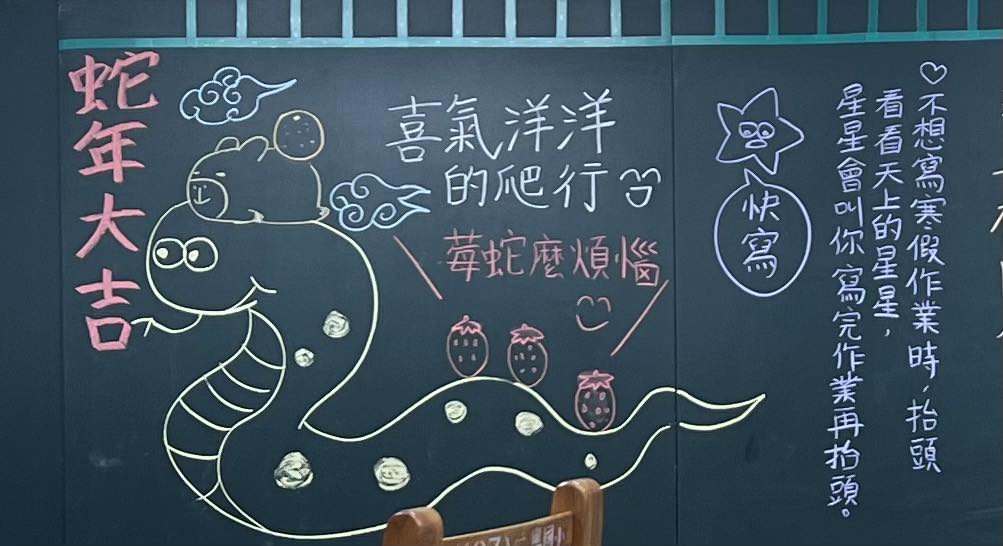 蛇年大吉
喜氣洋洋
的爬行
莓蛇麼煩惱
快寫
♡不想寫寒假作業時，抬頭
看看天上的星星，
星星會叫你寫完作業再抬頭。